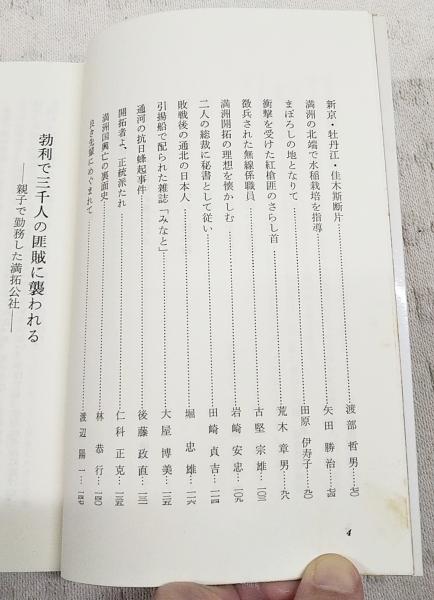 新京・牡丹江・佳木斯断片……渡部哲男…七〇
満洲の北端で水稲栽培を指導……矢田勝治…七四
まぼろしの地となりて……田原伊寿子…九〇
衝撃を受けた紅槍匪のさらし首……荒木章男…九八
徴兵された無線係職員……古堅宗雄…一〇三
満洲開拓の理想を懐かしむ……岩崎安忠…一〇九
二人の総裁に秘書として従い……田崎貞吉…一一四
敗戦後の通北の日本人……堀忠雄…一一六
引揚船で配られた雑誌「みなと」……大屋博美…一二五
通河の抗日蜂起事件……後藤政直…一三一
開拓者よ、正統派たれ……仁科正克…一三五
満洲国興亡の裏面史……林恭行…一四〇
良き先輩にめぐまれて……渡辺陽一…一四七
4
勃利で三千人の匪賊に襲われる
――親子で勤務した満拓公社――